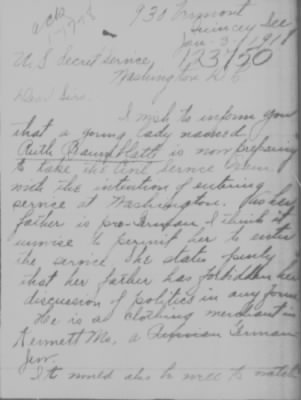 ack
1-7-18
930 Vermont
Quincy Ill
Jan-3-1918
123120
U.S Secret Service
Washington D C
Dear Sirs.
I wish to inform you
that a young lady named
Ruth is now preparing
to take the Civil Service Exam.
with the intention of entering
service at Washington. As her
father is pro-German I think it
unwise to permit her to enter
the service. She states
that her father has forbidden her
discussion of politics in any form
He is a clothing merchant in
Kennett Mo. a German
Jew.
It would also be well to watch